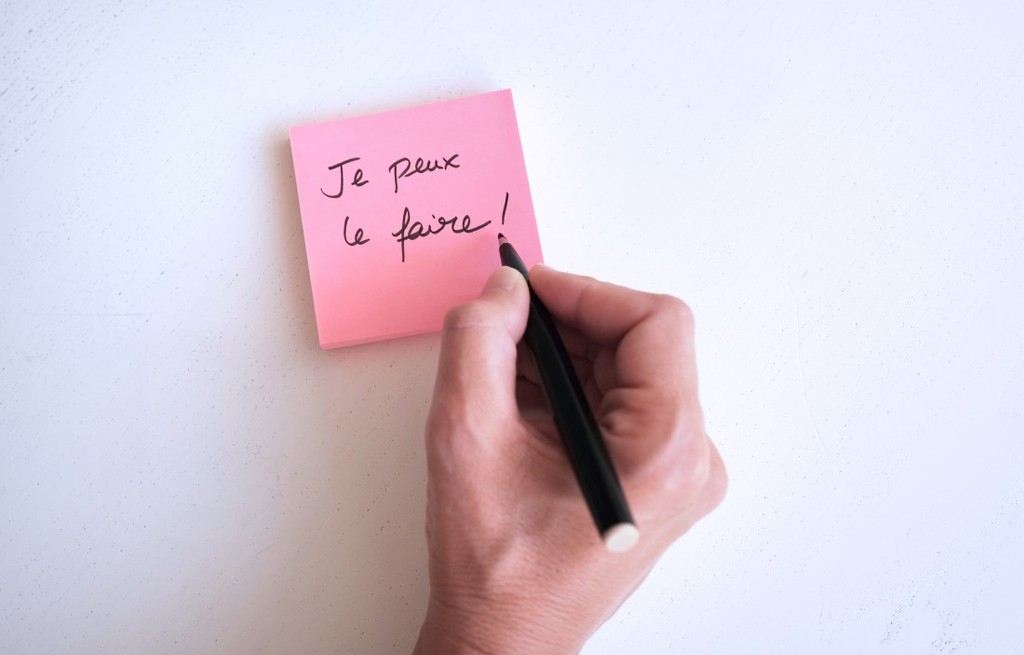 Je peux
le faire!